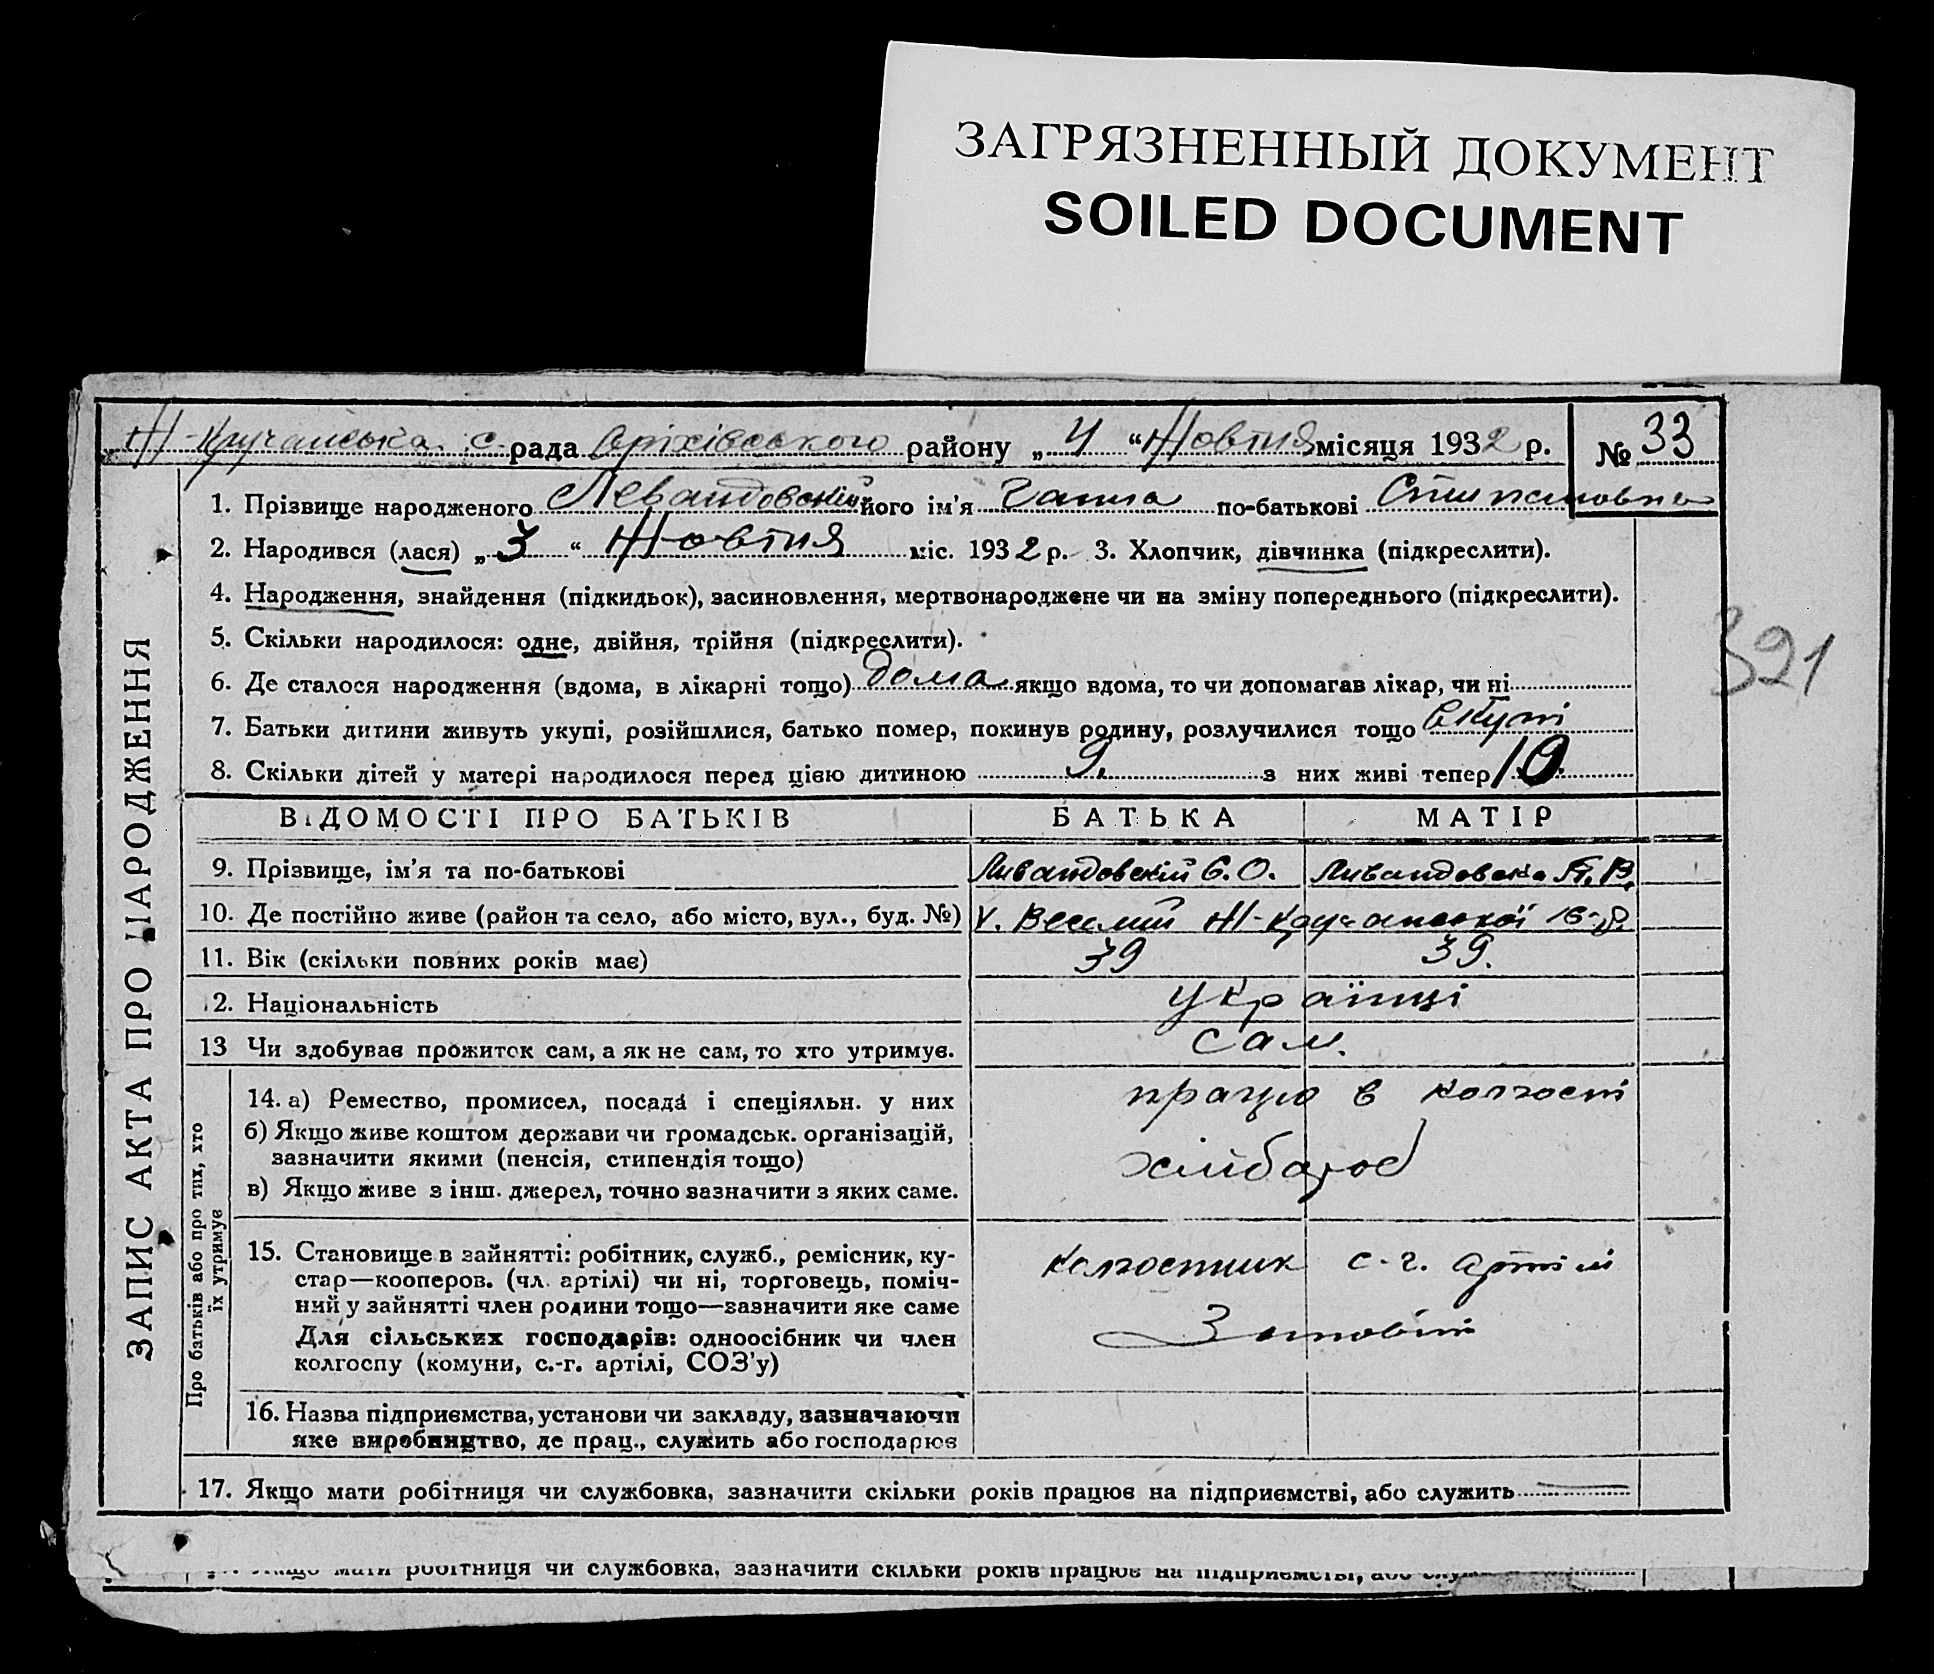 ЗАГРЯЗНЕННЫЙ ДОКУМЕНТ
SOILED DOCUMENT
с. рада Оріхівського району „ 4 “ Жовтня місяця 1932 р. № 33
1. Прізвище народженого Левандовский його ім'я Ганна по-батькові
2. Народився (лася) „ 3 “ Жовтня міс. 1932 р. 3. Хлопчик, дівчинка (підкреслити).
4. Народження, знайдення (підкидьок), засиновлення, мертвонароджене чи на зміну попереднього (підкреслити).
5. Скільки народилося: одне, двійня, трійня (підкреслити).
321
6. Де сталося народження (вдома, в лікарні тощо) дома якщо вдома, то чи допомагав лікар, чи ні
7. Батьки дитини живуть укупі, розійшлися, батько помер, покинув родину, розлучилися тощо вкупі
8. Скільки дітей у матері народилося перед цією дитиною 9. з них живі тепер 10.
ЗАПИС АКТА ПРО НАРОДЖЕННЯ
ВІДОМОСТІ ПРО БАТЬКІВ БАТЬКА МАТІР
9. Прізвище, ім'я та по-батькові Ливандовский С. О. Ливандовска П. В.
10. Де постійно живе (район та село, або місто, вул., буд. №) х. Веселий
11. Вік (скільки повних років має) 39 39.
12. Національність українці
13 Чи здобував прожиток сам, а як не сам, то хто утримує. сам.
Про батьків або про тих, хто
їх утримує
14. а) Ремество, промисел, посада і спеціяльн. у них працю в колгоспі
б) Якщо живе коштом держави чи громадськ. організацій,
зазначити якими (пенсія, стипендія тощо) хлібороб
в) Якщо живе з інш. джерел, точно зазначити з яких саме.
15. Становище в зайнятті: робітник, служб., ремісник, ку-
стар—кооперов. (чл. артілі) чи ні, торговець, поміч- колгоспник с.-г. артілі
ний у зайнятті член родини тощо—зазначити яке саме
Для сільських господарів: одноосібник чи член
колгоспу (комуни, с.-г. артілі, СОЗ'у)
16. Назва підприємства, установи чи закладу, зазначаючи
яке виробництво, де прац., служить або господарює
17. Якщо мати робітниця чи службовка, зазначити скільки років працює на підприємстві, або служить
Якщо мати робітниця чи службовка, зазначити скільки років працює на підприємстві, або